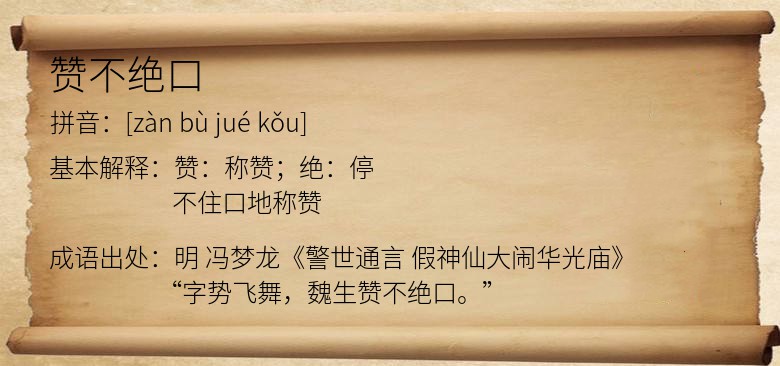 赞不绝口
拼音：[zàn bù jué kǒu]
基本解释：赞：称赞；绝：停
不住口地称赞
成语出处：明 冯梦龙《警世通言 假神仙大闹华光庙》
“字势飞舞，魏生赞不绝口。”